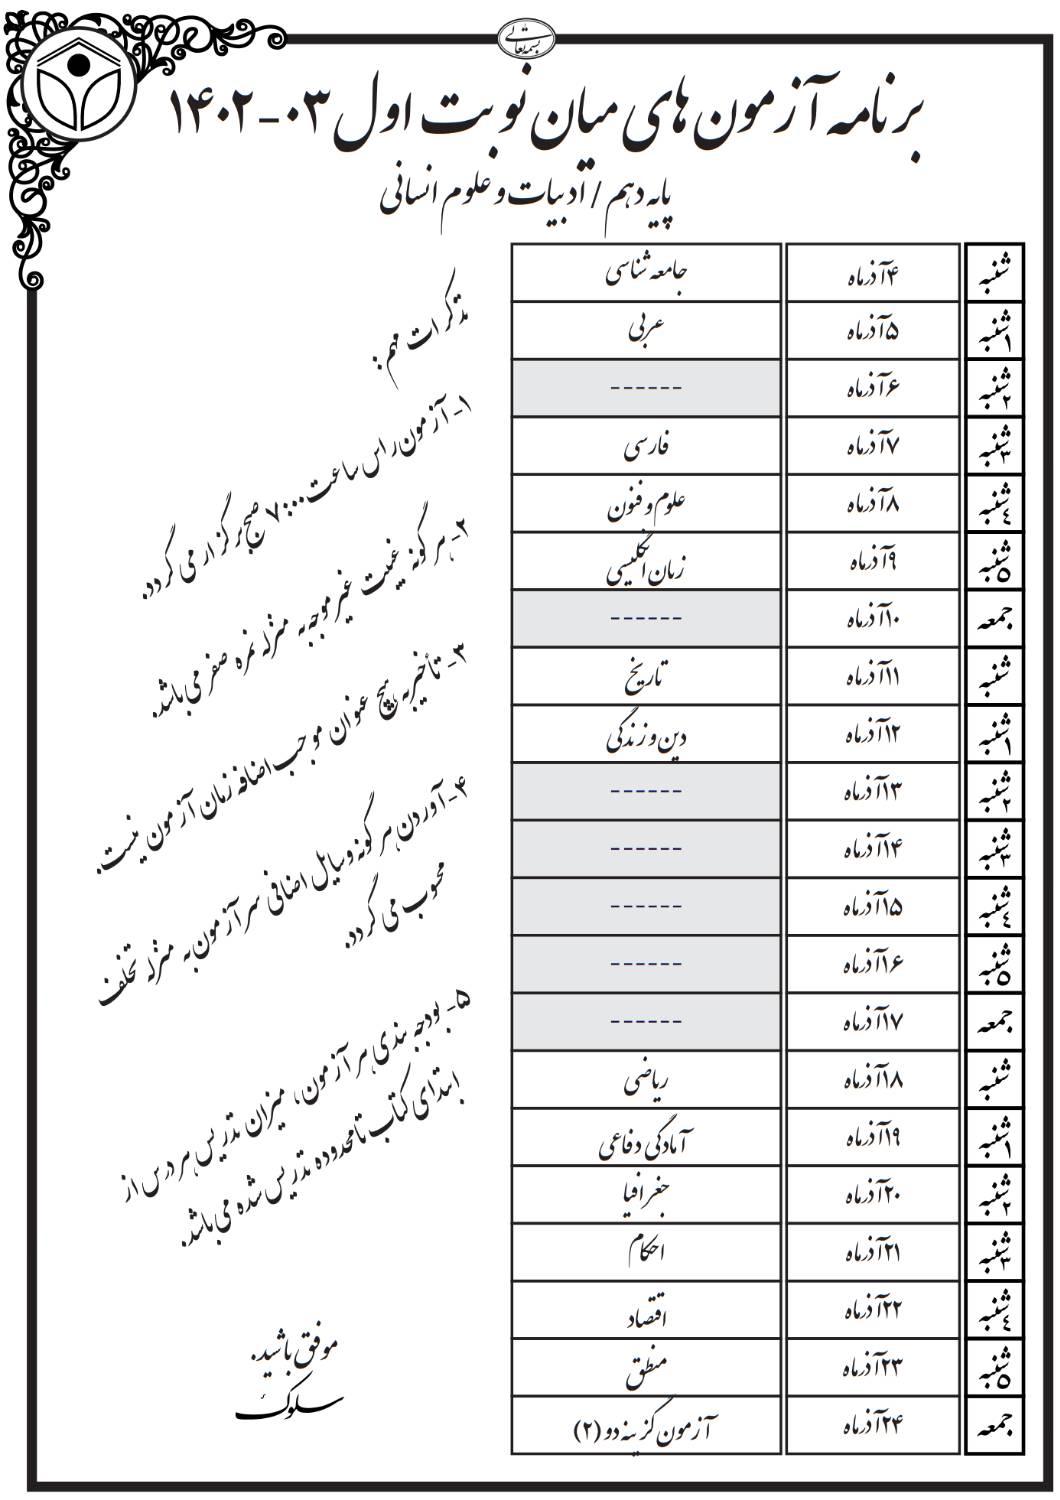 بسمه تعالی
برنامه آزمون های میان نوبت اول ۰۳-۱۴۰۲
پایه دهم / ادبیات و علوم انسانی
شنبه ۴آذرماه جامعه شناسی
۱شنبه ۵آذرماه عربی
۲شنبه ۶آذرماه ------
۳شنبه ۷آذرماه فارسی
۴شنبه ۸آذرماه علوم و فنون
۵شنبه ۹آذرماه زمان انگلیسی
جمعه ۱۰آذرماه ------
شنبه ۱۱آذرماه تاریخ
۱شنبه ۱۲آذرماه دین و زندگی
۲شنبه ۱۳آذرماه ------
۳شنبه ۱۴آذرماه ------
۴شنبه ۱۵آذرماه ------
۵شنبه ۱۶آذرماه ------
جمعه ۱۷آذرماه ------
شنبه ۱۸آذرماه ریاضی
۱شنبه ۱۹آذرماه آمادگی دفاعی
۲شنبه ۲۰آذرماه جغرافیا
۳شنبه ۲۱آذرماه احکام
۴شنبه ۲۲آذرماه اقتصاد
۵شنبه ۲۳آذرماه منطق
جمعه ۲۴آذرماه آزمون گزینه دو (۲)
تذکرات مهم :
۱- آزمون راس ساعت ۷:۰۰ صبح برگزار می گردد.
۲- هر گونه غیبت غیر موجه به منزله نمره صفر می باشد.
۳- تأخیر به هیچ عنوان موجب اضافه زمان آزمون نیست.
۴- آوردن هر گونه وسایل اضافی سر آزمون به منزله تخلف
محسوب می گردد.
۵- بودجه بندی هر آزمون، میزان تدریس هر درس از
ابتدای کتاب تا محدوده تدریس شده می باشد.
موفق باشید.
سلوک